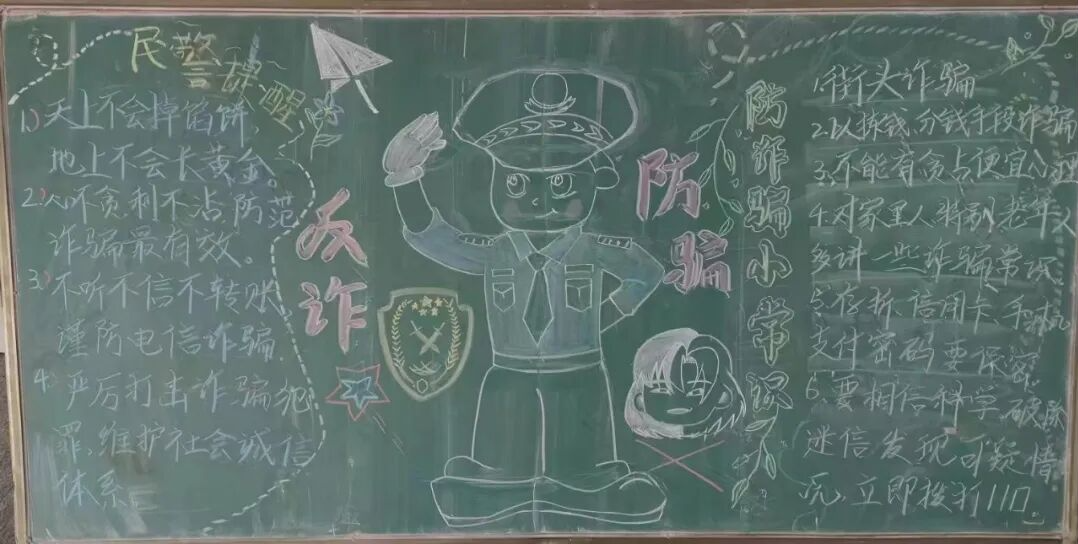 民警提醒
1、天上不会掉馅饼,
地上不会长黄金。
2、不贪利不沾防范
诈骗最有效。
3、不听不信不转账
谨防电信诈骗
4、严厉打击诈骗犯
罪,维护社会诚信
体系
反诈
防骗
防诈骗小常识
1.街头诈骗
2.以拣钱、分钱手段诈骗
3.不能有贪占便宜心理
4.对家里人特别老年人
多讲一些诈骗常识
5.存折、信用卡、手机
支付密码要保密
6.要相信科学破除
迷信发现可疑情
况,立即拨打110。